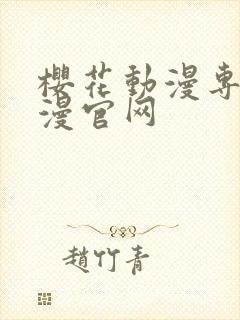 櫻花動漫專
漫官网
趙竹青